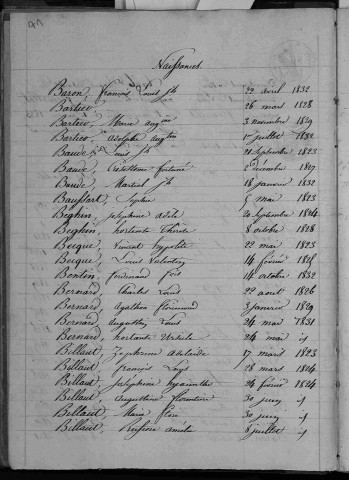 Naissances
Baron, François Louis Jh 22 avril 1832
Bartier 26 mars 1828
Bartier, Marie 3 novembre 1829
Bartier, Adolphe 1er juillet 1832
Baude, Louis Jh 21 septembre 1823
Baude, fortuné 2 décembre 1827
Baude, Martial Jh 18 janvier 1832
Baussart, Sophie 5 mai 1823
Beghin, Josephine adèle 20 septembre 1824
Beghin, hortante 8 octobre 1828
Becque, Vincent hypolite 22 mai 1823
Becque, Louis Valentin 14 février 1828
Bentin, ferdinand 14 octobre 1832
Bernard, Charles Louis 22 août 1826
Bernard, Agathon florimond 3 janvier 1829
Bernard, Augustin Louis 24 mai 1831
Bernard, hortante Ursule 24 mai
Billaut, Zephirine Adelaïde 17 mars 1823
Billaut, François Louis 28 mars 1824
Billaut, Josephine hyacinthe 24 février 1824
Billaut, Augustine florentine 30 juin
Billaut, Marie flore 30 juin
Billaut, Rufine amélie 8 juillet